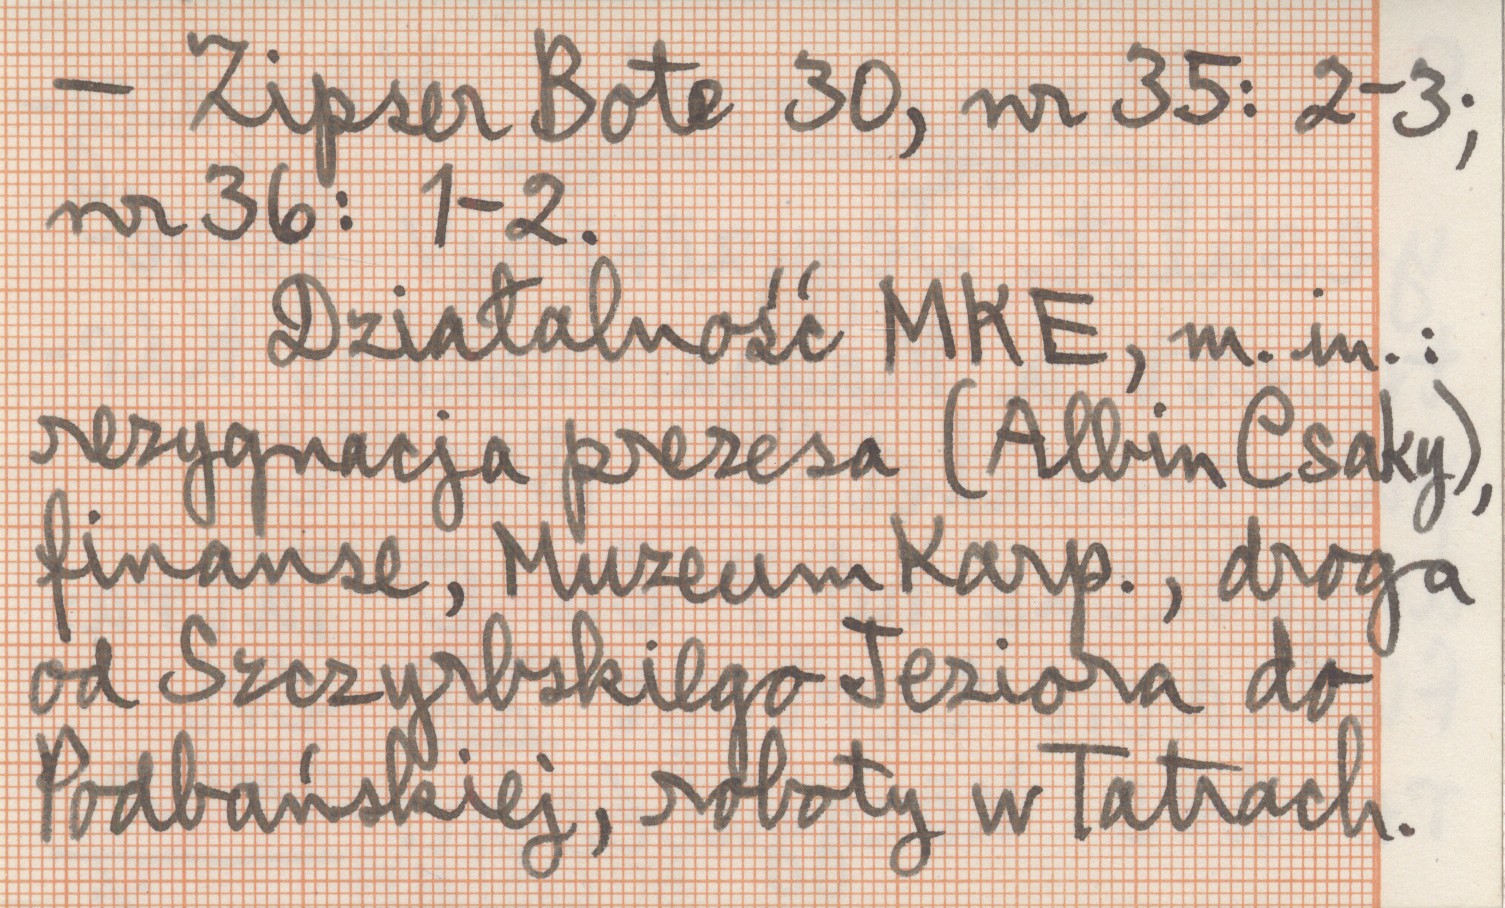 — Zipser Bote 30, nr 35: 2-3;
nr 36: 1-2.
Działalność MKE, m. in.:
rezygnacja prezesa (Albin Csaky),
finanse, Muzeum Karp., droga
od Szczyrbskiego Jeziora do
Podbańskiej, roboty w Tatrach.